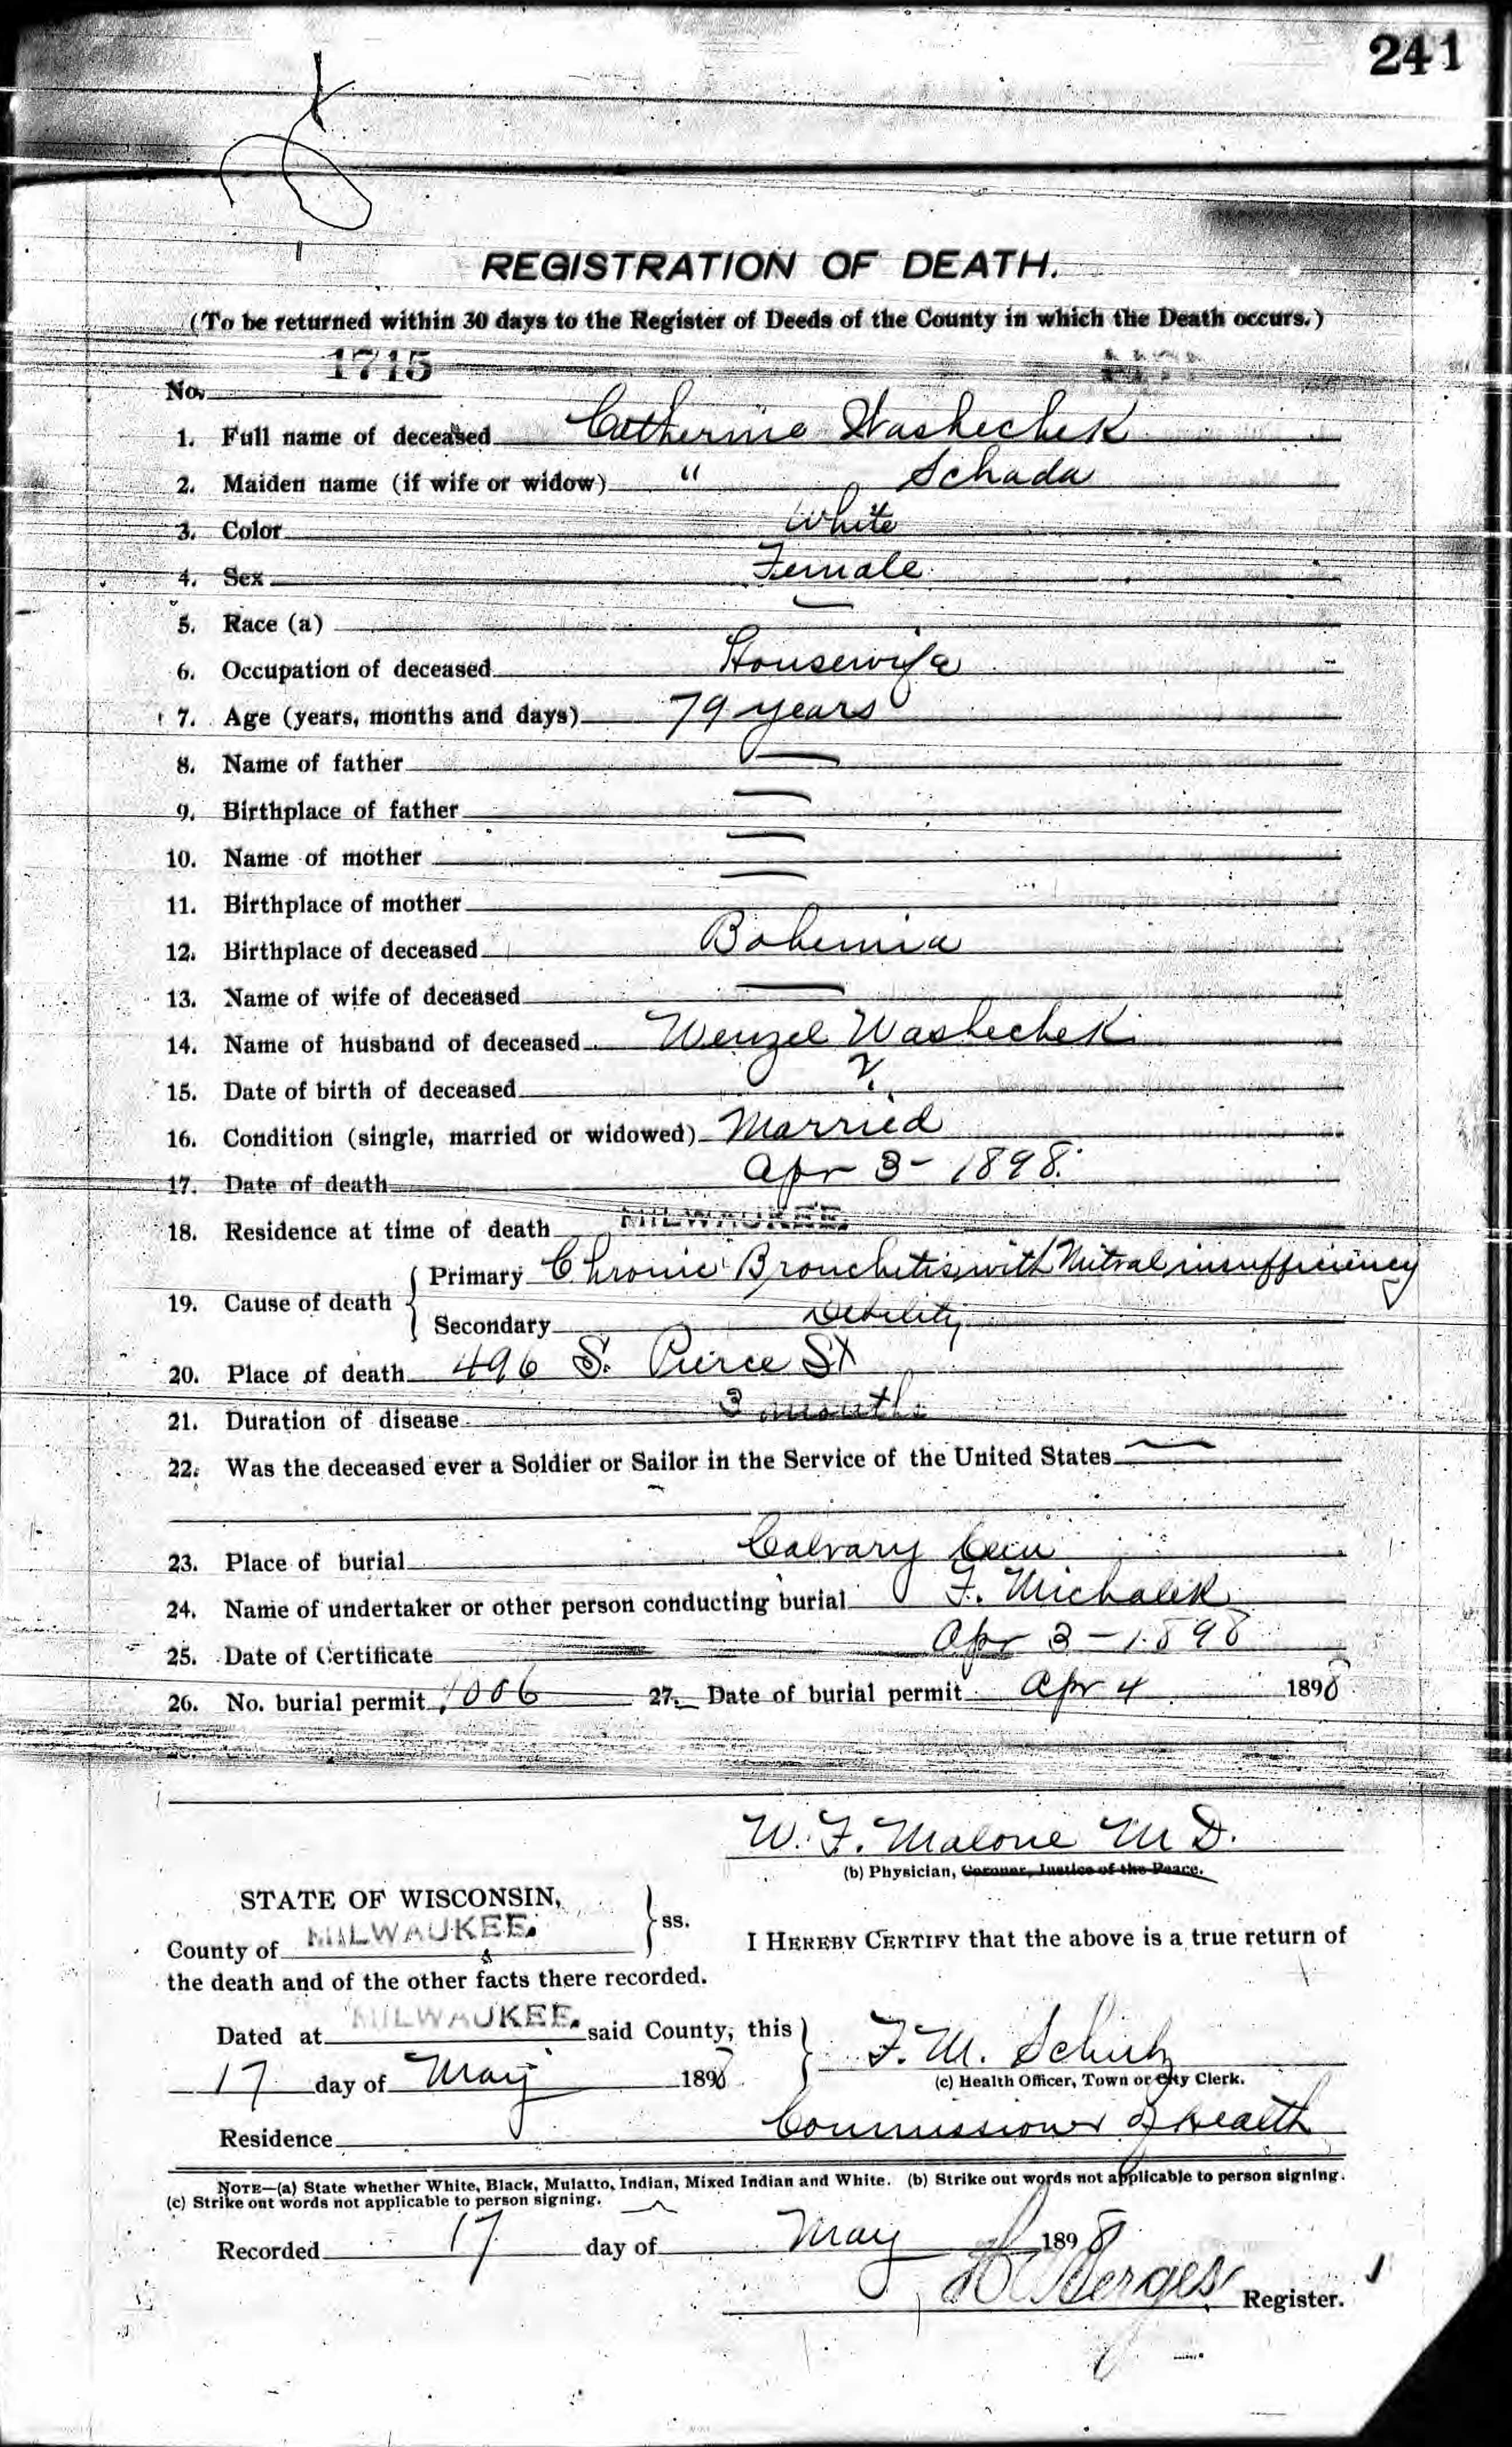 241
REGISTRATION OF DEATH.
(To be returned within 30 days to the Register of Deeds of the County in which the Death occurs.)
No. 1715
1. Full name of deceased Catherine Washechek
2. Maiden name (if wife or widow) " Schada
3. Color White
4. Sex Female
5. Race (a) —
6. Occupation of deceased Housewife
7. Age (years, months and days) 79 years
8. Name of father —
9. Birthplace of father —
10. Name of mother —
11. Birthplace of mother —
12. Birthplace of deceased Bohemia
13. Name of wife of deceased —
14. Name of husband of deceased Wenzel Washechek
15. Date of birth of deceased ?
16. Condition (single, married or widowed) Married
17. Date of death Apr 3 - 1898.
18. Residence at time of death MILWAUKEE.
19. Cause of death { Primary Chronic Bronchitis with Mitral insufficiency
Secondary Debility
20. Place of death 496 S. Pierce St
21. Duration of disease 3 months
22. Was the deceased ever a Soldier or Sailor in the Service of the United States —
23. Place of burial Calvary Cem
24. Name of undertaker or other person conducting burial F. Michalek
25. Date of Certificate Apr 3 - 1898
26. No. burial permit 1006 27. Date of burial permit Apr 4 1898
W. F. Malone M D.
(b) Physician, Coroner, Justice of the Peace.
STATE OF WISCONSIN, } ss.
County of MILWAUKEE. I HEREBY CERTIFY that the above is a true return of
the death and of the other facts there recorded.
Dated at MILWAUKEE. said County, this } F. M. Schulz
17 day of May 1898 (c) Health Officer, Town or City Clerk.
Residence Commissioner of Health
NOTE—(a) State whether White, Black, Mulatto, Indian, Mixed Indian and White. (b) Strike out words not applicable to person signing.
(c) Strike out words not applicable to person signing.
Recorded 17 day of May 1898
Berges Register.